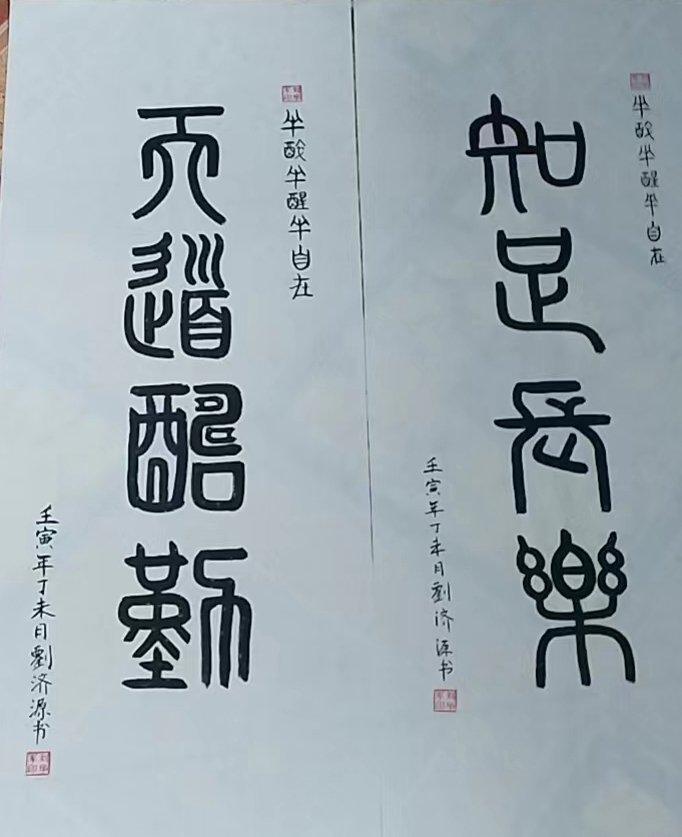 半酸半醒半自在
知足長樂
壬寅年丁未月劉济源书
半酸半醒半自在
天道酬勤
壬寅年丁未月劉济源书